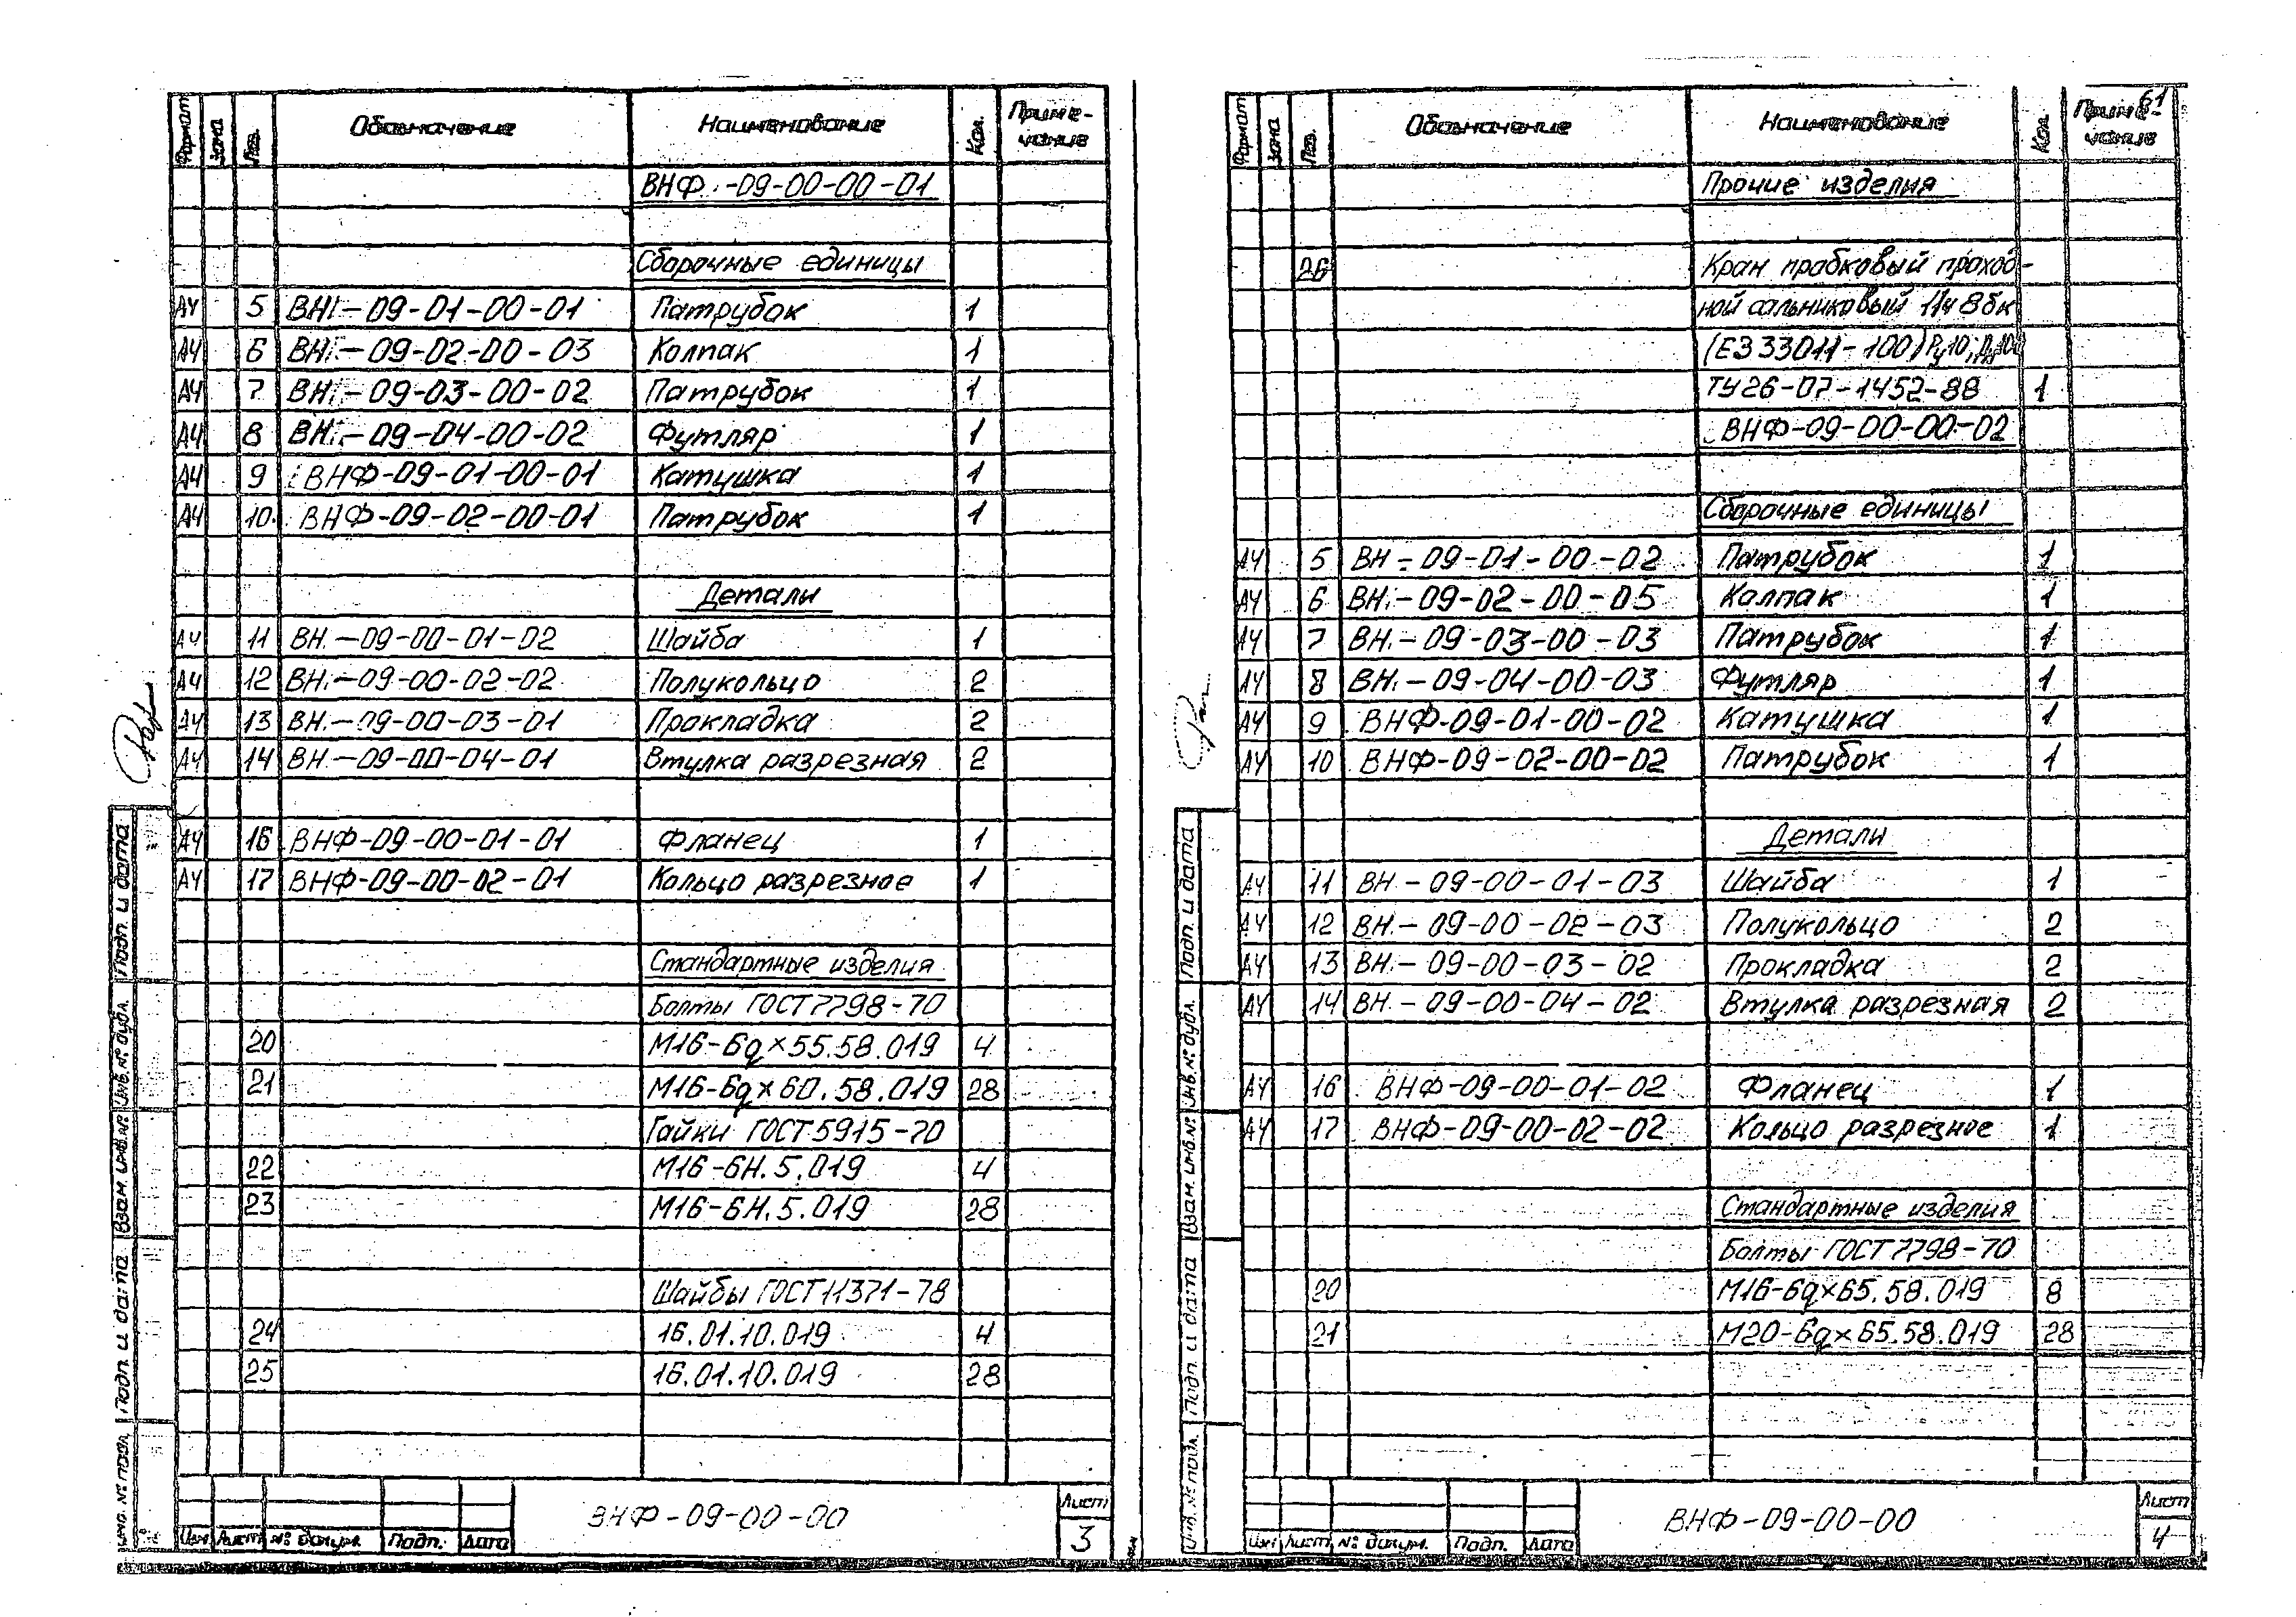 Формат Зона Поз. Обозначение Наименование Кол. Приме-
чание
ВНФ-09-00-00-01
Сборочные единицы
А4 5 ВН-09-01-00-01 Патрубок 1
А4 6 ВН-09-02-00-03 Колпак 1
А4 7 ВН-09-03-00-02 Патрубок 1
А4 8 ВН-09-04-00-02 Футляр 1
А4 9 ВНФ-09-01-00-01 Катушка 1
А4 10 ВНФ-09-02-00-01 Патрубок 1
Детали
А4 11 ВН-09-00-01-02 Шайба 1
А4 12 ВН-09-00-02-02 Полукольцо 2
А4 13 ВН-09-00-03-01 Прокладка 2
А4 14 ВН-09-00-04-01 Втулка разрезная 2
А4 16 ВНФ-09-00-01-01 Фланец 1
А4 17 ВНФ-09-00-02-01 Кольцо разрезное 1
Стандартные изделия
Болты ГОСТ 7798-70
20 М16-6g×55.58.019 4
21 М16-6g×60.58.019 28
Гайки ГОСТ 5915-70
22 М16-6Н.5.019 4
23 М16-6Н.5.019 28
Шайбы ГОСТ 11371-78
24 16.01.10.019 4
25 16.01.10.019 28
Инв. № подл. Подп. и дата Взам. инв. № Инв. № дубл. Подп. и дата
Изм. Лист № докум. Подп. Дата
ВНФ-09-00-00
Лист
3
61
Формат Зона Поз. Обозначение Наименование Кол. Приме-
чание
Прочие изделия
26 Кран пробковый проход-
ной сальниковый 11ч8бк
(ЕЗ 33011-100) Ру10; Ду100
ТУ26-07-1452-88 1
ВНФ-09-00-00-02
Сборочные единицы
А4 5 ВН-09-01-00-02 Патрубок 1
А4 6 ВН-09-02-00-05 Колпак 1
А4 7 ВН-09-03-00-03 Патрубок 1
А4 8 ВН-09-04-00-03 Футляр 1
А4 9 ВНФ-09-01-00-02 Катушка 1
А4 10 ВНФ-09-02-00-02 Патрубок 1
Детали
А4 11 ВН-09-00-01-03 Шайба 1
А4 12 ВН-09-00-02-03 Полукольцо 2
А4 13 ВН-09-00-03-02 Прокладка 2
А4 14 ВН-09-00-04-02 Втулка разрезная 2
А4 16 ВНФ-09-00-01-02 Фланец 1
А4 17 ВНФ-09-00-02-02 Кольцо разрезное 1
Стандартные изделия
Болты ГОСТ 7798-70
20 М16-6g×65.58.019 8
21 М20-6g×65.58.019 28
Инв. № подл. Подп. и дата Взам. инв. № Инв. № дубл. Подп. и дата
Изм Лист № докум. Подп. Дата
ВНФ-09-00-00
Лист
4